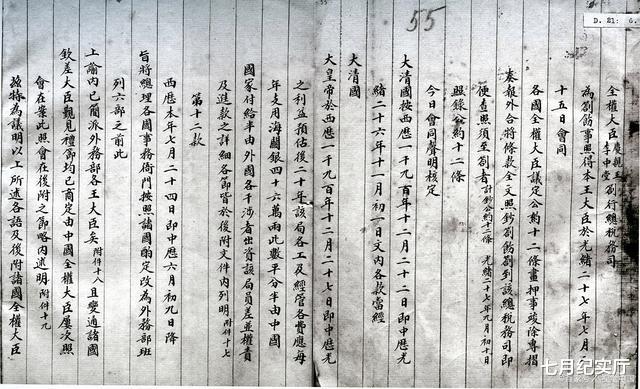 55
D. 21: 6.
全權大臣慶親王李中堂劄行總稅務司
為劄飭事照得本王大臣於光緒二十七年七月二
十五日會同
各國全權大臣議定公約十二條畫押事竣除專摺
奏報外合將條款全文照鈔劄飭劄到該總稅務司即
便查照須至劄者計鈔公約十二條 光緒二十七年九月初十日
照錄公約十二條
今日會同聲明核定
大清國按西歷一千九百年十二月二十二日即中歷光
緒二十六年十一月初一日文內各款當經
大清國
大皇帝於西歷一千九百年十二月二十七日即中歷光
之利益預估後二十年該局各工及經管各費應每
年支用海關銀四十六萬兩此數平分半由中國
國家付給半由外國各干涉者出資該局員差並權責
及進款之詳細各節皆於後附文件內列明附件十七
第十二款
西歷本年七月二十四日即中歷六月初九日降
旨將總理各國事務衙門按照諸國酌定改為外務部班
列六部之前此
上諭內已簡派外務部各王大臣矣附件十八且變通諸國
欽差大臣覲見禮節均已商定由中國全權大臣屢次照
會在案此照會在後附之節略內述明附件十九
茲特為議明以上所述各語及後附諸國全權大臣
七月纪实厅